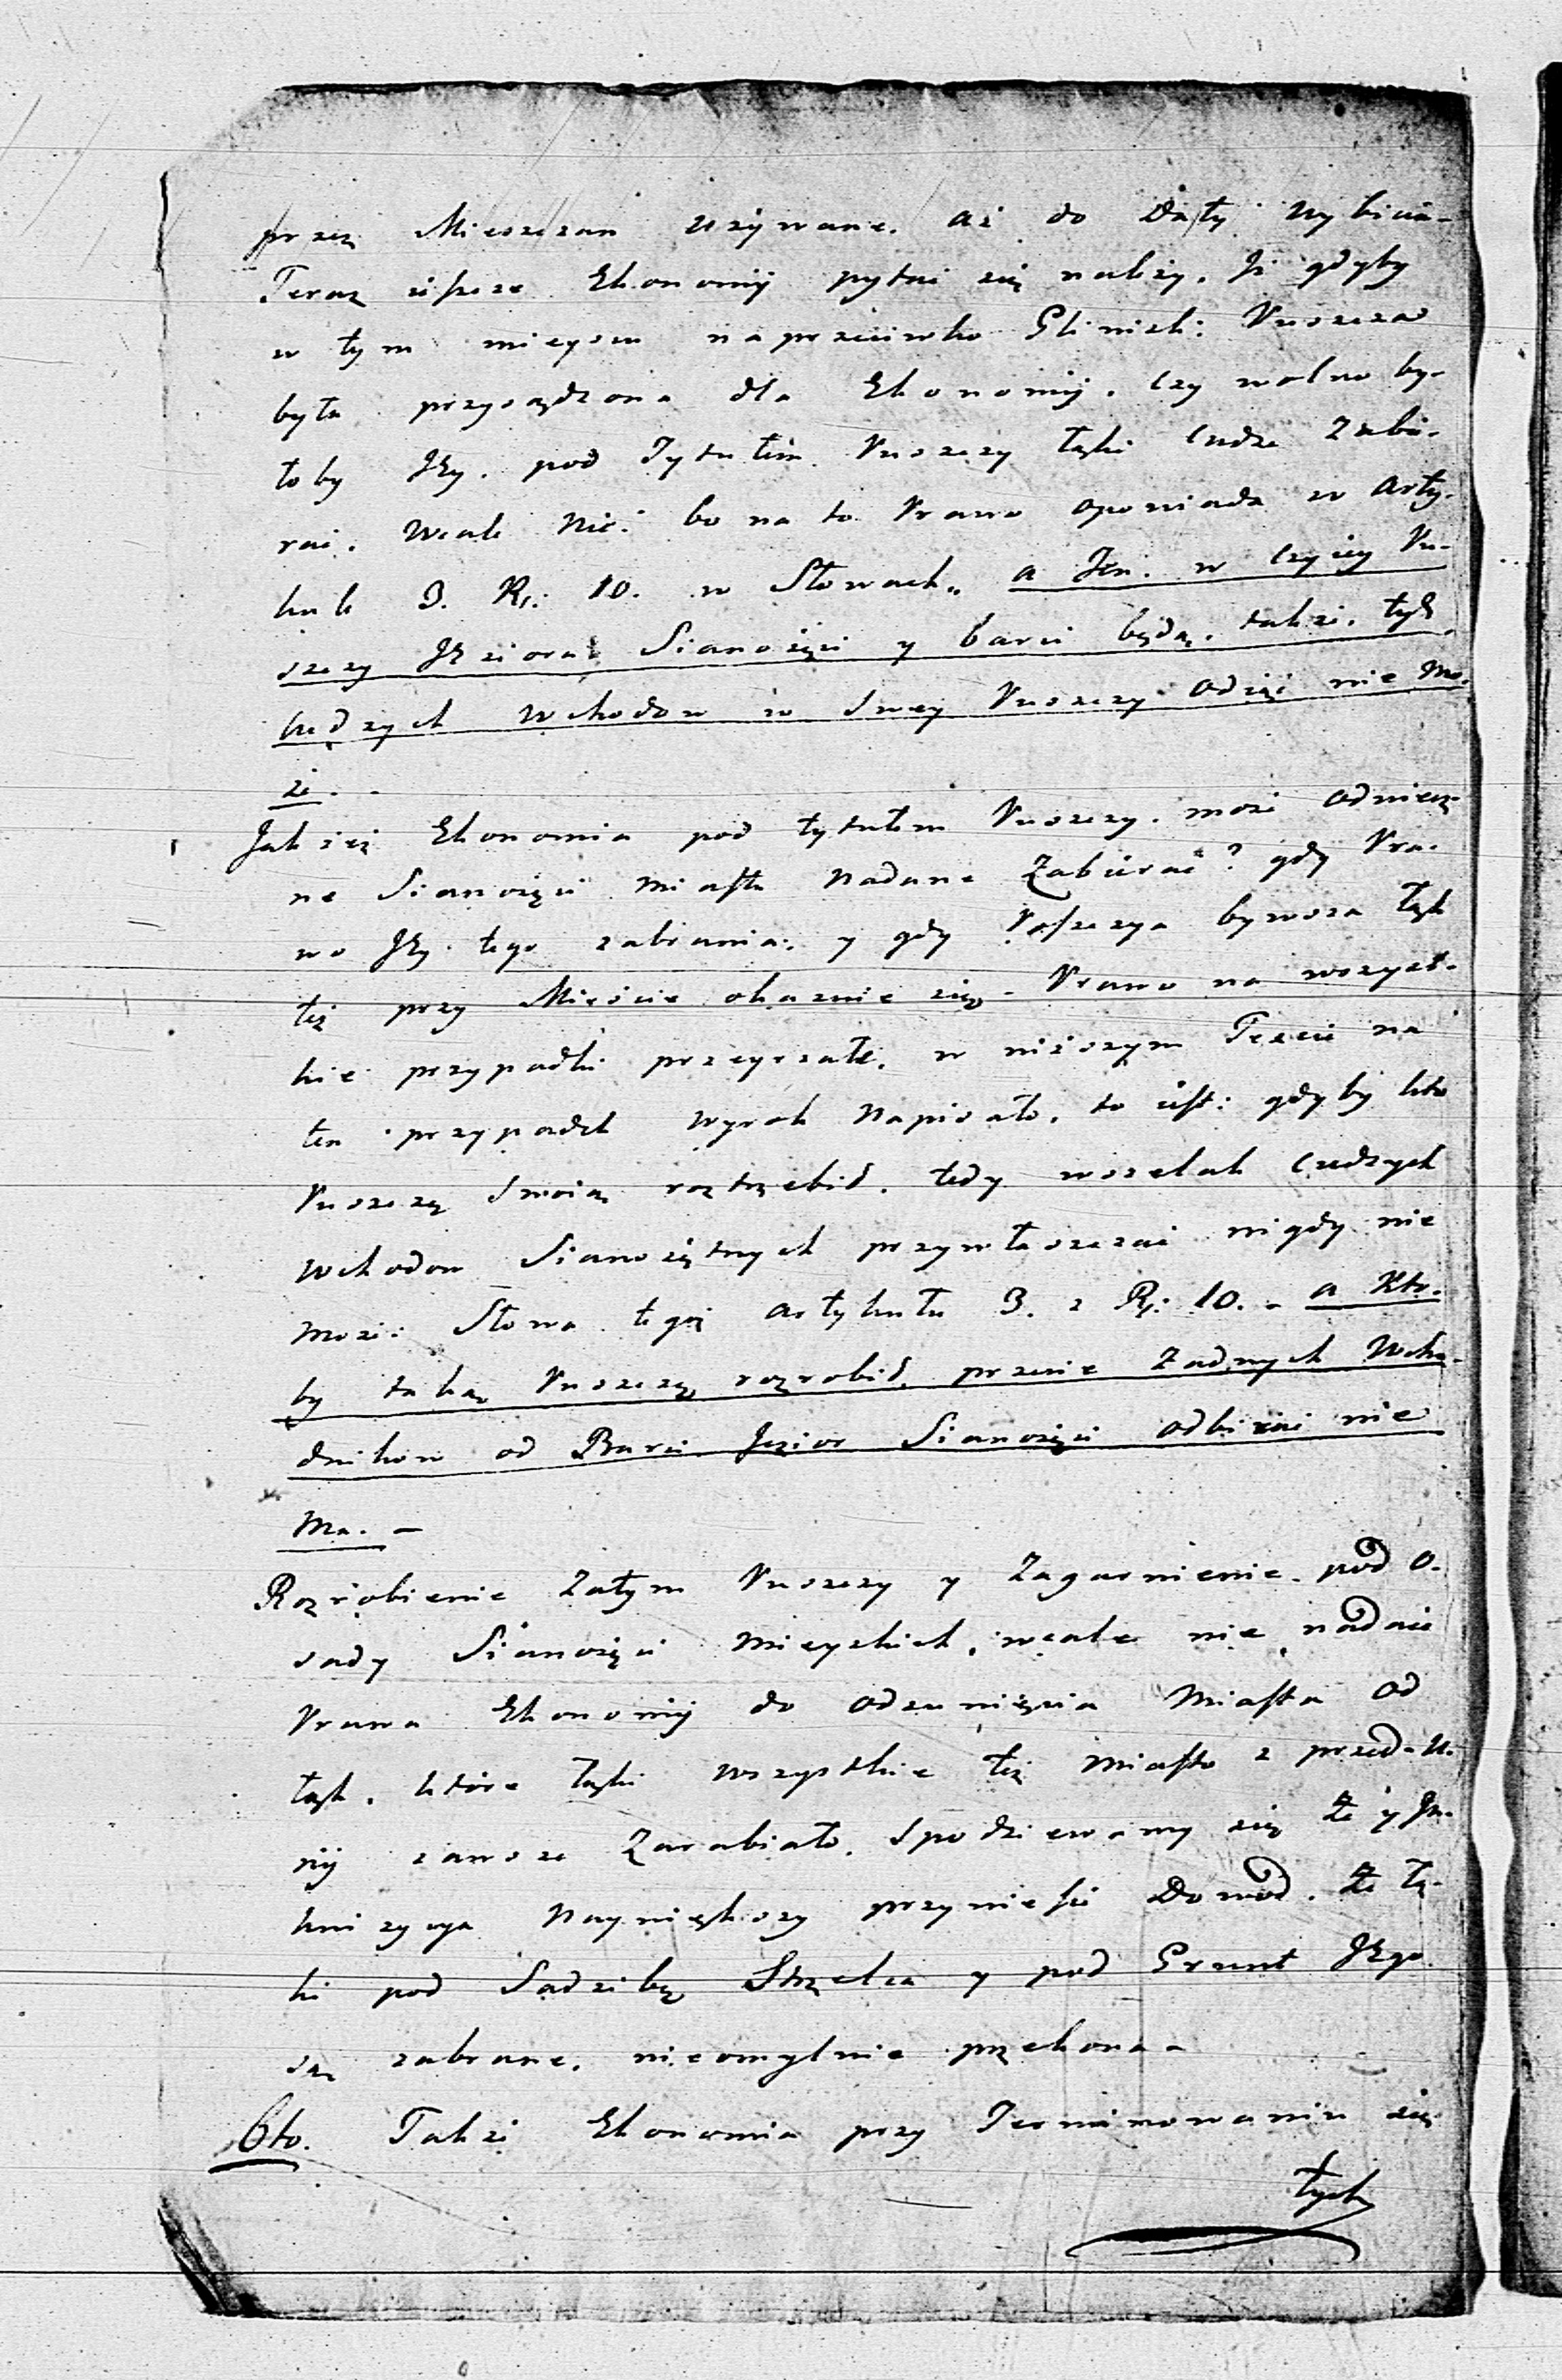 przez Mieszczan używane. aż do Daty wybicia-
Teraz ieszcze Ekonomij pytać się należy. Jż gdyby
w tym mieyscu naprzeciwko Glinisk: Puszcza
była przysądzona dla Ekonomij. czy wolno by-
łoby JEy. pod Tytułem Puszczy Łąki cudze Zabi-
rać. Wcale Nié: bo na to Prawo opowiada w Arty-
kule 3. Rz: 10. w Słowach„ a Jeśli. w czyiey Pu-
szczy JEziora Sianożęci y barci będą. takżi. tych
cudzych Wchodow w swey Puszczy Odiąć nie mo-
że. -
Jakżeż Ekonomia pod tytułem Puszczy. może odwiecz-
ne Sianożęci Miastu Nadane Zabierać? gdy Pra-
wo JEy. tego zabrania: y gdy Possessya bywsza Łąk
też przy Mieście okaznie się - Prawo na wszyst-
kie przypadki przeyrzałe. w niższym Texcie na
ten przypadek Wyrok Napisało. to iest: gdyby kto
Puszczę Swoią roztrzebił. tedy wszelak Cudzych
Wchodow Sianożętnych przywłaszczać nigdy nie
może: Słowa tegoż Artykułu 3. z Rz: 10. - a Kto-
by taką Puszczę rozrobił, przecie Żadnych Wcho-
dnikow od Barci Jezior Sianożęci odbirać nie
Ma. -
Rozrobienie Zatym Puszczy y Zagarnienie. pod O-
sady Sianożęci Mieyskich, wcale nie nadaie
Prawa Ekonomij do Odsunięcia Miasta Od
Łąk. które Łąki wszystkie też Miasto z przed-U-
nij zawsze Zarabiało. Spodziewamy się Że y Jn-
kwizycya Naywiększy przyniesie Dowod. Że Łą-
ki pod Sadzibę Strzelca y pod Grunt JEgo
są zabrane. nieomylnie przekona -
6to. Takżi Ekonomia przy Terminowaniu się
tych